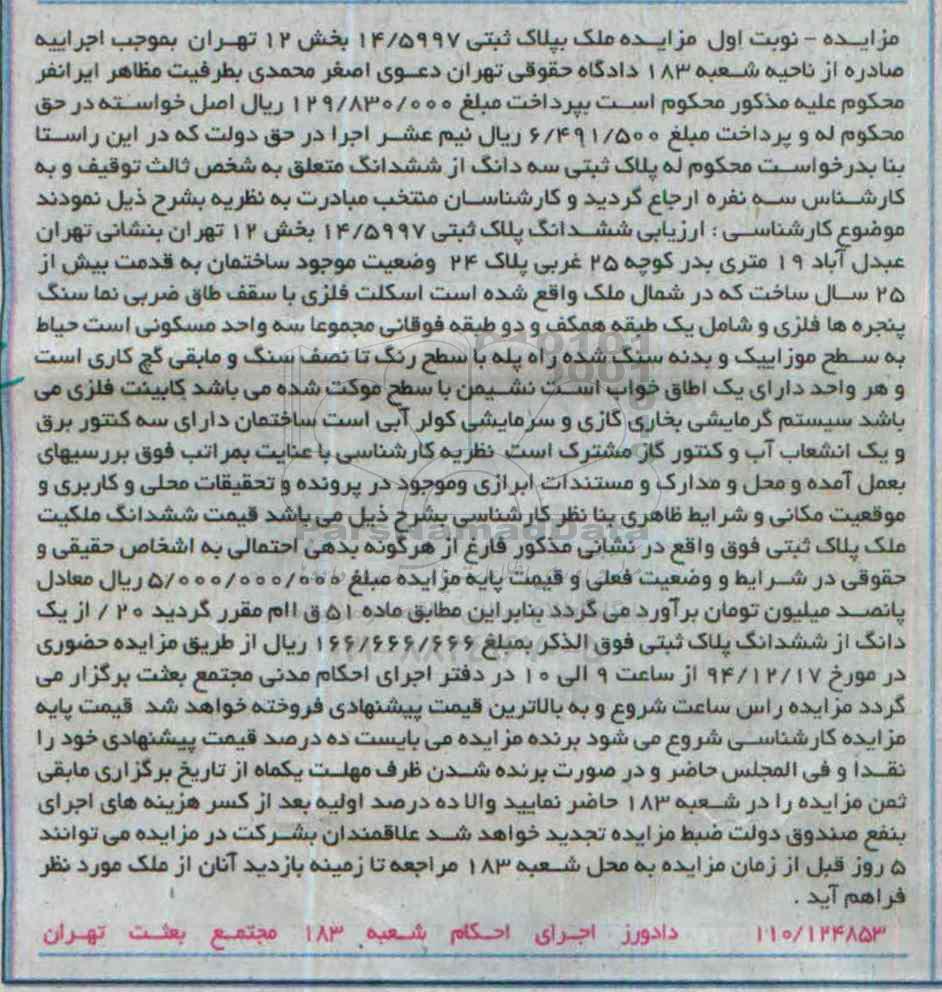 مزایده - نوبت اول مزایده ملک بپلاک ثبتی ۱۴/۵۹۹۷ بخش ۱۲ تهران بموجب اجراییه
صادره از ناحیه شعبه ۱۸۳ دادگاه حقوقی تهران دعوی اصغر محمدی بطرفیت مظاهر ایرانفر
محکوم علیه مذکور محکوم است بپرداخت مبلغ ۱۲۹/۸۳۰/۰۰۰ ریال اصل خواسته در حق
محکوم له و پرداخت مبلغ ۶/۴۹۱/۵۰۰ ریال نیم عشر اجرا در حق دولت که در این راستا
بنا بدرخواست محکوم له پلاک ثبتی سه دانگ از ششدانگ متعلق به شخص ثالث توقیف و به
کارشناس سه نفره ارجاع گردید و کارشناسان منتخب مبادرت به نظریه بشرح ذیل نمودند
موضوع کارشناسی : ارزیابی ششدانگ پلاک ثبتی ۱۴/۵۹۹۷ بخش ۱۲ تهران بنشانی تهران
عبدل آباد ۱۹ متری بدر کوچه ۲۵ غربی پلاک ۲۴ وضعیت موجود ساختمان به قدمت بیش از
۲۵ سال ساخت که در شمال ملک واقع شده است اسکلت فلزی با سقف طاق ضربی نما سنگ
پنجره ها فلزی و شامل یک طبقه همکف و دو طبقه فوقانی مجموعا سه واحد مسکونی است حیاط
به سطح موزاییک و بدنه سنگ شده راه پله با سطح رنگ تا نصف سنگ و مابقی گچ کاری است
و هر واحد دارای یک اطاق خواب است نشیمن با سطح موکت شده می باشد کابینت فلزی می
باشد سیستم گرمایشی بخاری گازی و سرمایشی کولر آبی است ساختمان دارای سه کنتور برق
و یک انشعاب آب و کنتور گاز مشترک است نظریه کارشناسی با عنایت بمراتب فوق بررسیهای
بعمل آمده و محل و مدارک و مستندات ابرازی وموجود در پرونده و تحقیقات محلی و کاربری و
موقعیت مکانی و شرایط ظاهری بنا نظر کارشناسی بشرح ذیل می باشد قیمت ششدانگ ملکیت
ملک پلاک ثبتی فوق واقع در نشانی مذکور فارغ از هرگونه بدهی احتمالی به اشخاص حقیقی و
حقوقی در شرایط و وضعیت فعلی و قیمت پایه مزایده مبلغ ۵/۰۰۰/۰۰۰/۰۰۰ ریال معادل
پانصد میلیون تومان برآورد می گردد بنابراین مطابق ماده ۵۱ ق اام مقرر گردید ۲۰ / از یک
دانگ از ششدانگ پلاک ثبتی فوق الذکر بمبلغ ۱۶۶/۶۶۶/۶۶۶ ریال از طریق مزایده حضوری
در مورخ ۹۴/۱۲/۱۷ از ساعت ۹ الی ۱۰ در دفتر اجرای احکام مدنی مجتمع بعثت برگزار می
گردد مزایده راس ساعت شروع و به بالاترین قیمت پیشنهادی فروخته خواهد شد قیمت پایه
مزایده کارشناسی شروع می شود برنده مزایده می بایست ده درصد قیمت پیشنهادی خود را
نقدا و فی المجلس حاضر و در صورت برنده شدن ظرف مهلت یکماه از تاریخ برگزاری مابقی
ثمن مزایده را در شعبه ۱۸۳ حاضر نمایید والا ده درصد اولیه بعد از کسر هزینه های اجرای
بنفع صندوق دولت ضبط مزایده تجدید خواهد شد علاقمندان بشرکت در مزایده می توانند
۵ روز قبل از زمان مزایده به محل شعبه ۱۸۳ مراجعه تا زمینه بازدید آنان از ملک مورد نظر
فراهم آید .
۱۱۰/۱۲۴۸۵۳ دادورز اجرای احکام شعبه ۱۸۳ مجتمع بعثت تهران
ParsNamadData